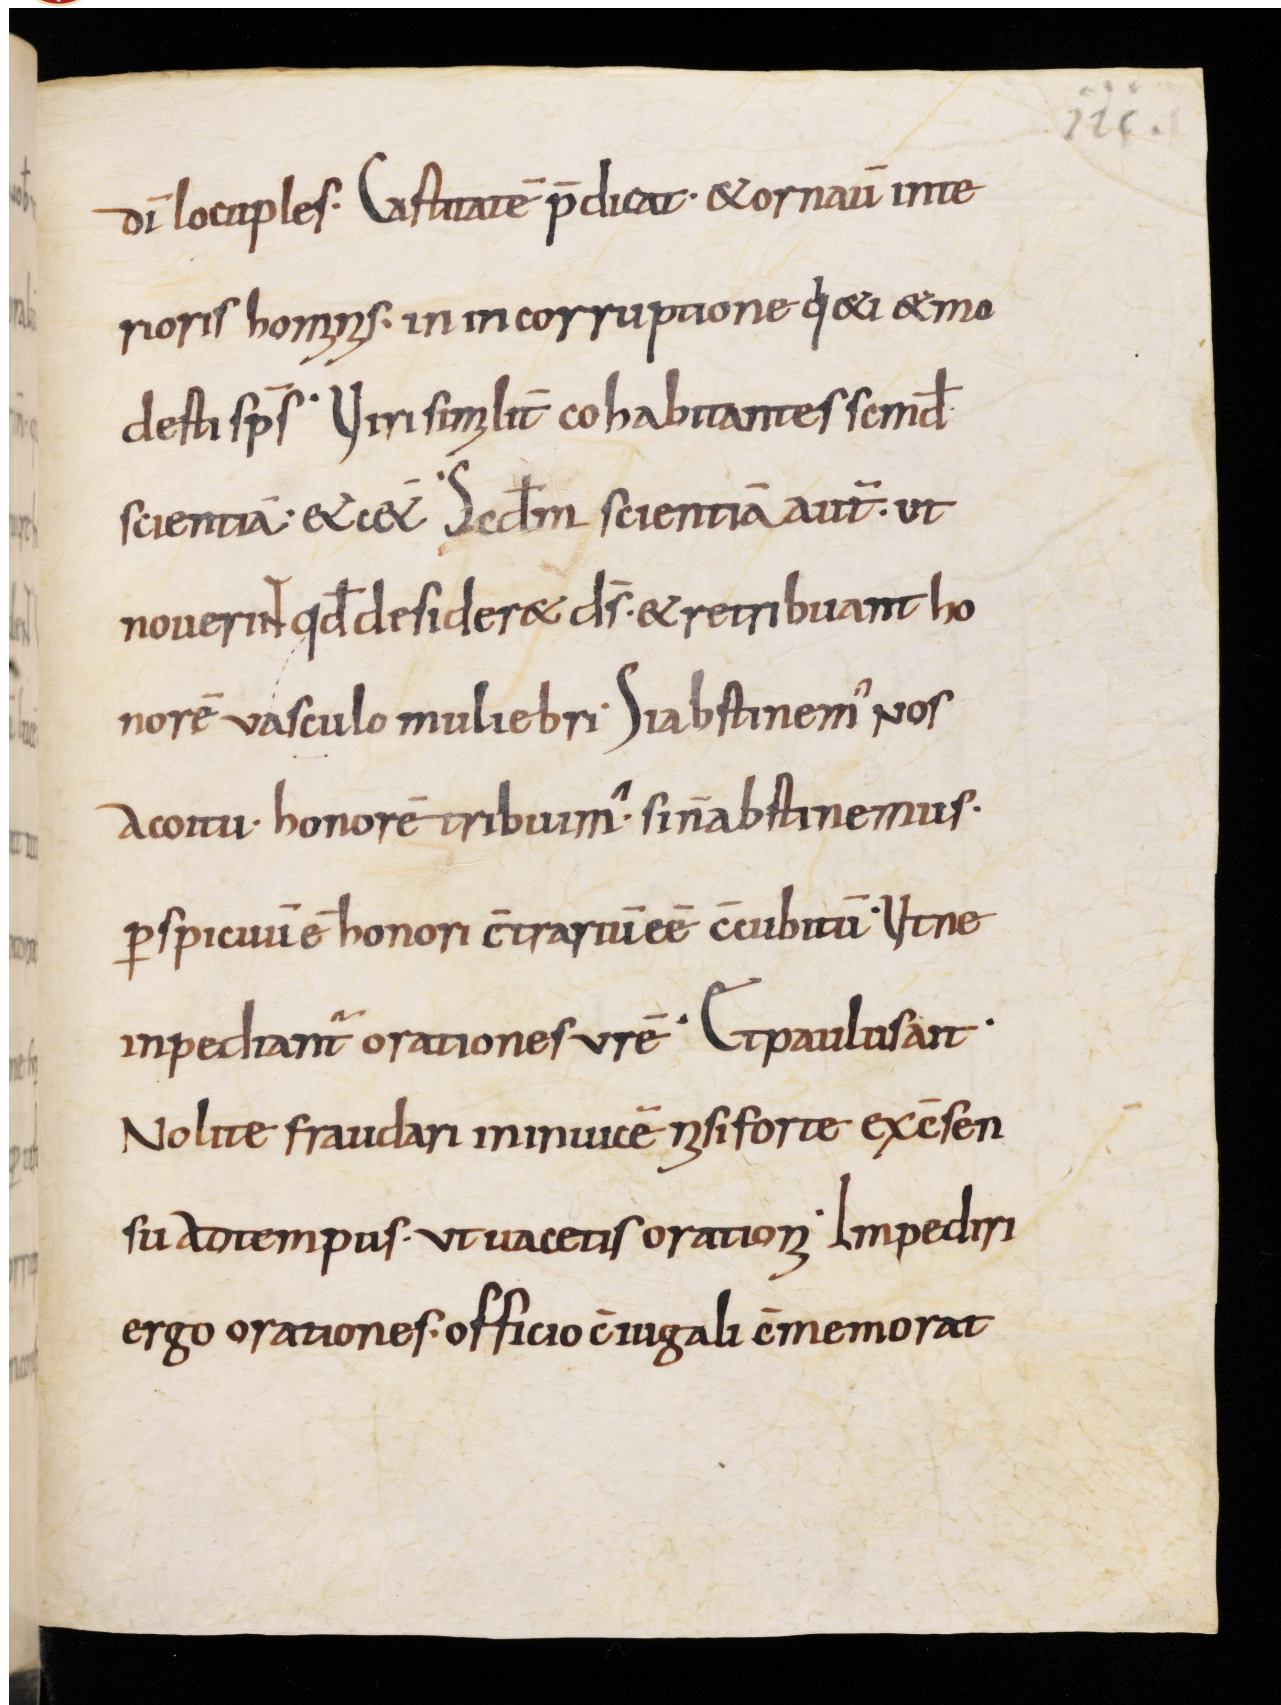 dī locuples· Castitatē p̄dicat· & ornatū inte
rioris hominis· in incorruptione q&i & mo
desti sp̄s· Viri similit̄ cohabitantes scđm
scientiā· & cet&̄· Scđm scientiā aut̄· ut
nouerint qđ desider& ds̄· & retribuant ho
norē vasculo muliebri· Si abstinemꝰ nos
a coitu· honorē tribuimꝰ· si n̄ abstinemus·
ꝑspicuū ē honori c̄trariū eē c̄cubitū· Vt ne
inpediant᷑ orationes vr̄ē· Et paulus ait·
Nolite fraudari inuicē nisi forte ex c̄sen
su ad tempus· ut uacetis orationi· Impediri
ergo orationes· officio c̄iugali c̄memorat